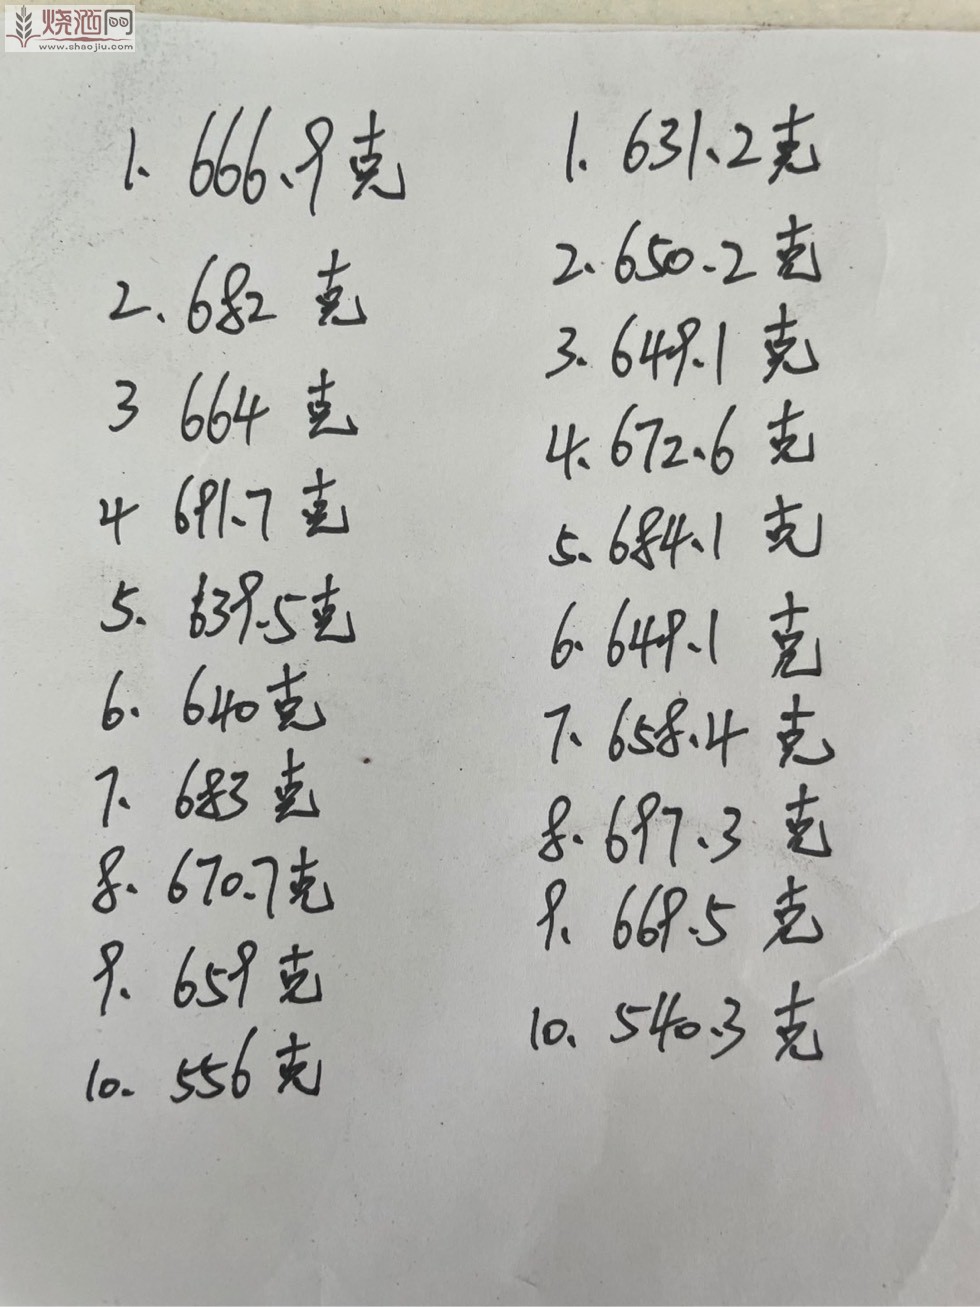 烧酒网
www.shaojiu.com
1. 666.9克
2. 682 克
3 664 克
4 691.7 克
5. 639.5克
6. 640克
7. 683 克
8. 670.7克
9. 659 克
10. 556 克
1. 631.2克
2. 650.2 克
3. 649.1 克
4. 672.6 克
5. 684.1 克
6. 649.1 克
7. 658.4 克
8. 697.3 克
9. 669.5 克
10. 540.3 克